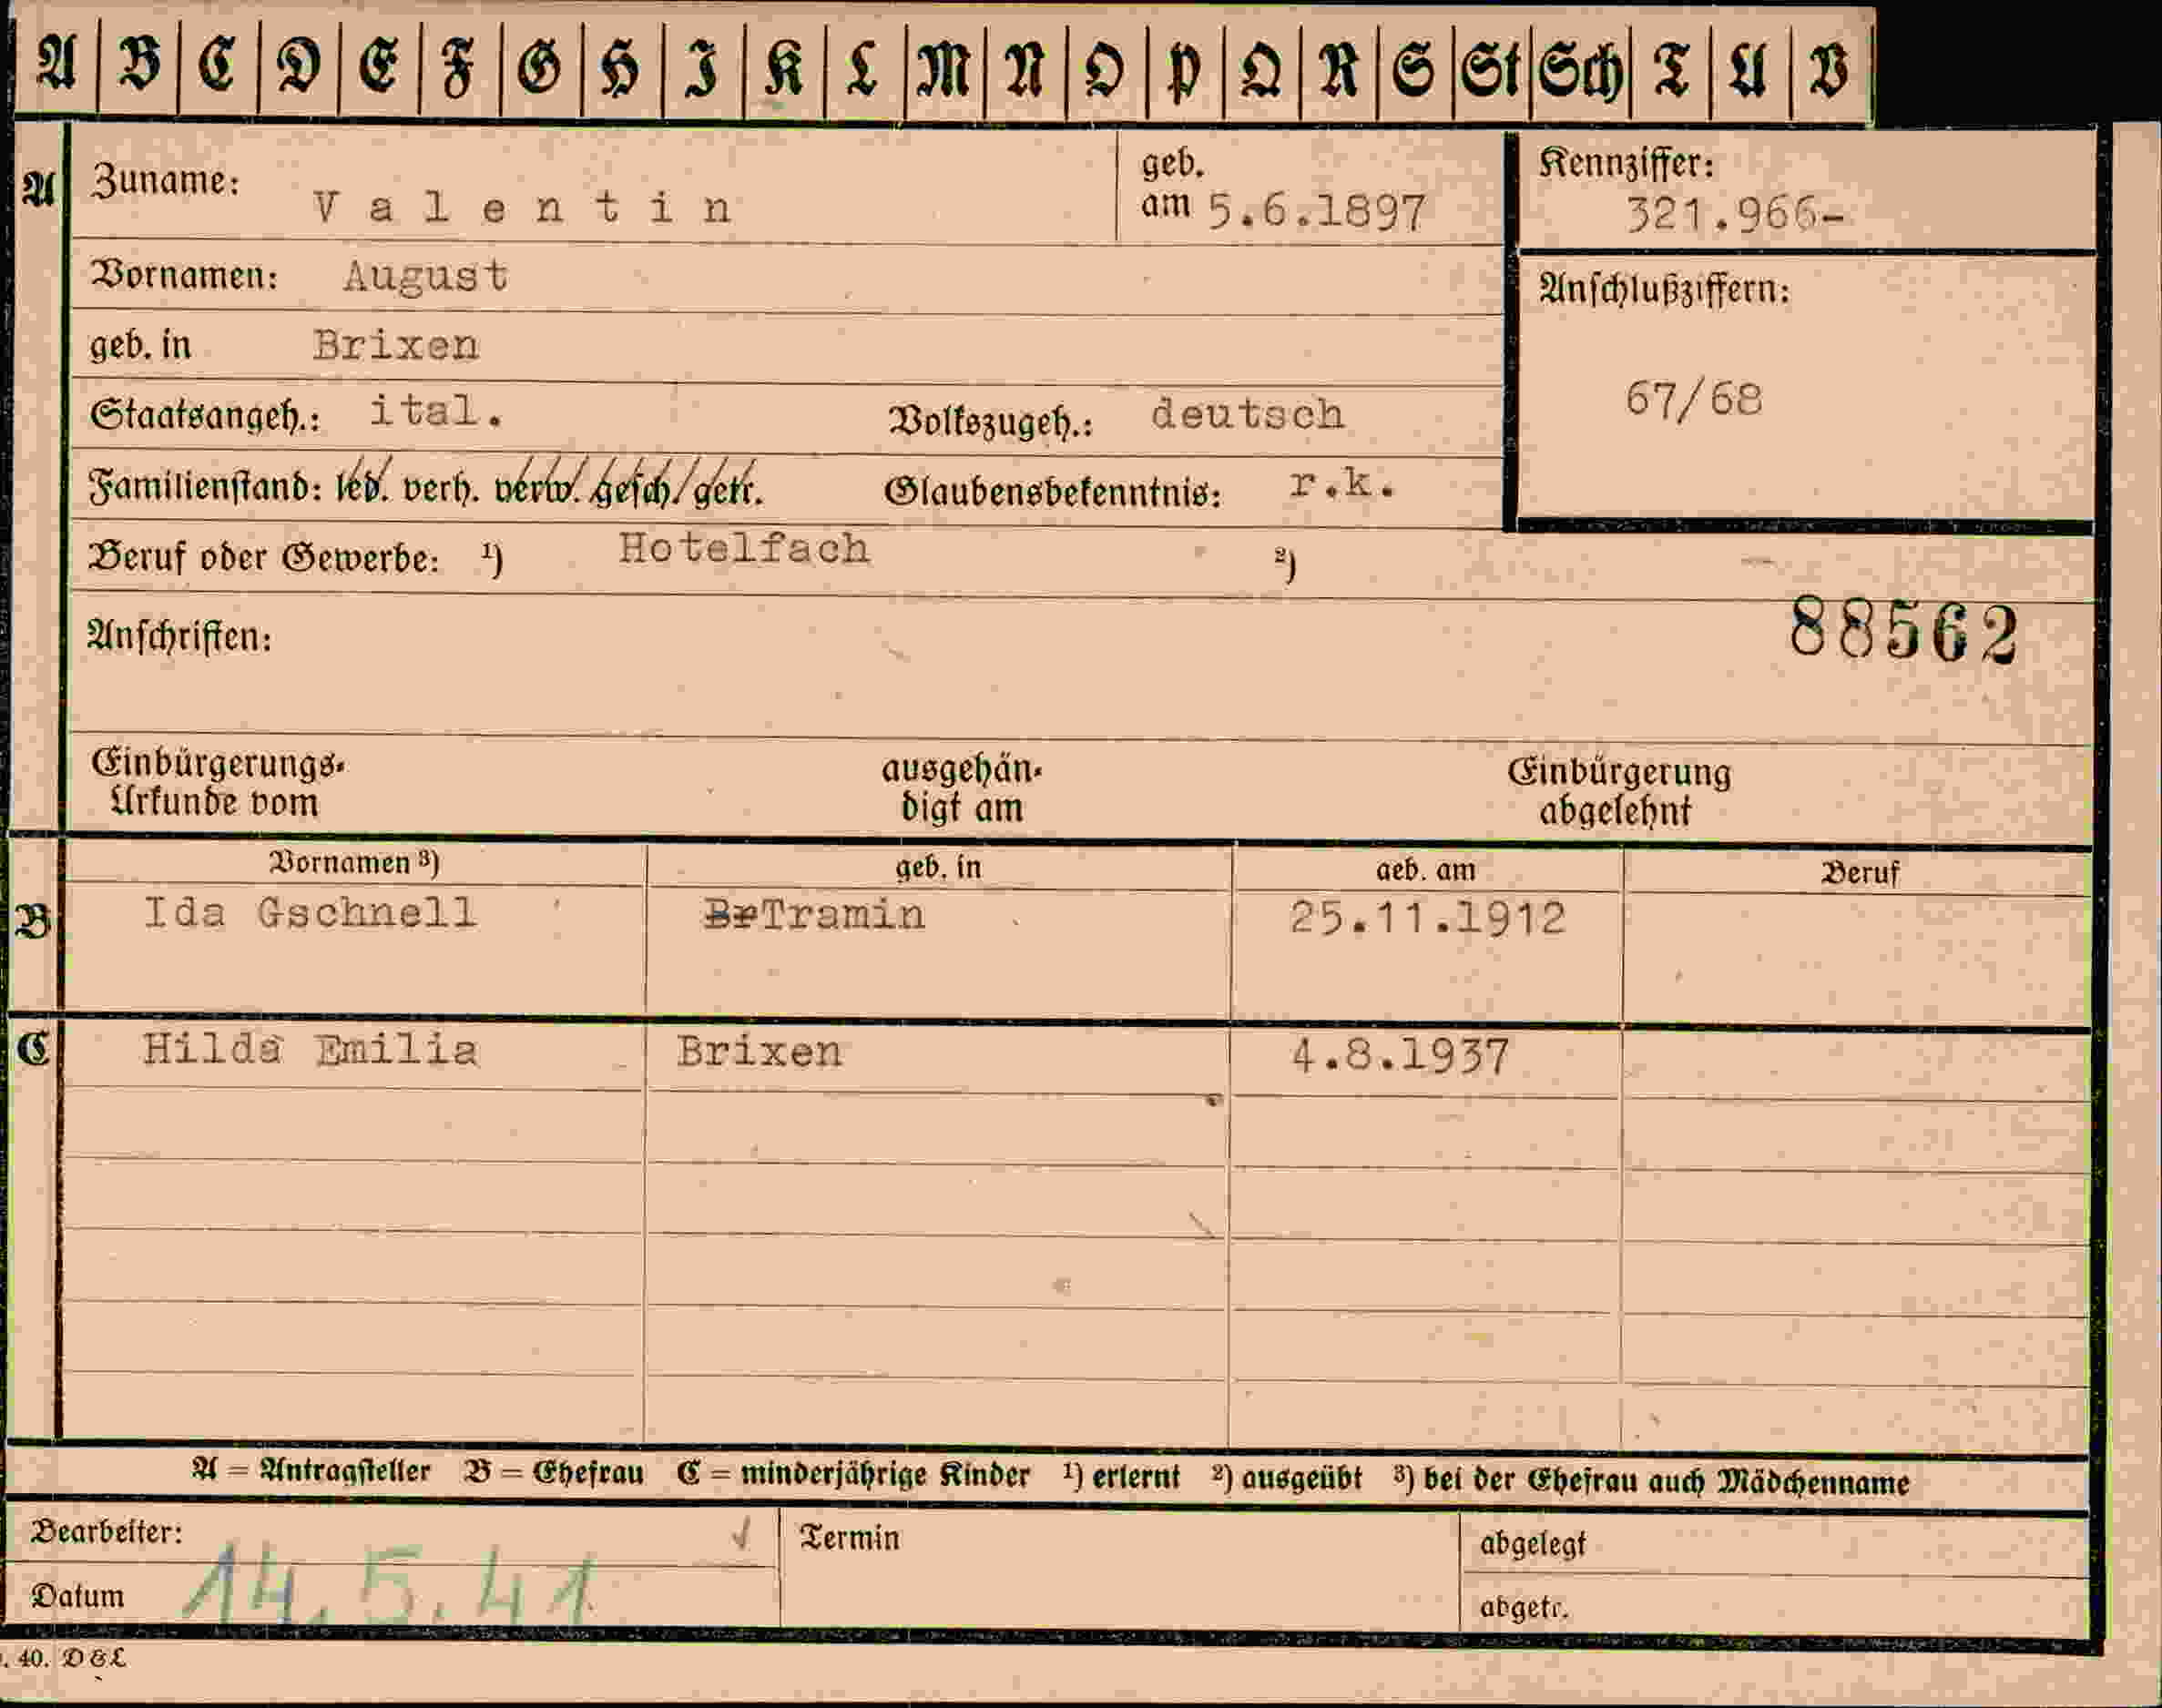 A B C D E F G H I K L M N O P Q R S St Sch T U V
A Zuname: Valentin geb. am 5.6.1897 Kennziffer: 321.966-
Vornamen: August Anschlußziffern:
geb. in Brixen
67/68
Staatsangeh.: ital. Volkszugeh.: deutsch
Familienstand: led. verh. verw. gesch. getr. Glaubensbekenntnis: r.k.
Beruf oder Gewerbe: ¹) Hotelfach ²)
88562
Anschriften:
Einbürgerungs- ausgehän- Einbürgerung
Urkunde vom digt am abgelehnt
Vornamen ³) geb. in geb. am Beruf
B Ida Gschnell BrTramin 25.11.1912
C Hilda Emilia Brixen 4.8.1937
A = Antragsteller B = Ehefrau C = minderjährige Kinder ¹) erlernt ²) ausgeübt ³) bei der Ehefrau auch Mädchenname
Bearbeiter: Termin abgelegt
Datum 14.5.41 abgetr.
. 40. D & L